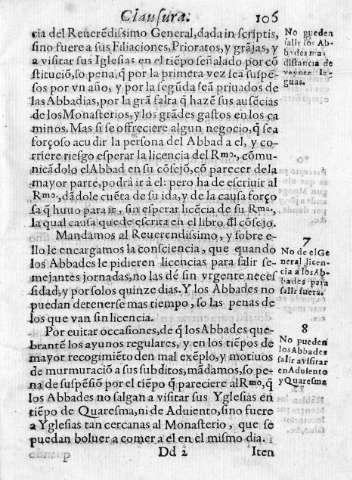 Clausura. 106
cia del Reuerẽdissimo General, dada in scriptis,
sino fuere a sus Filiaciones, Prioratos, y grãjas, y
a visitar sus Iglesias en el tiẽpo señalado por cõ
stitució, so pena, q̃ por la primera vez sea suspẽ-
sos por vn año, y por la segũda seã priuados de
las Abbadias, por la grã falta q̃ hazẽ sus ausẽcias
de los Monasterios, y los grãdes gastos en los ca
minos. Mas si se offreciere algun negocio, q̃ sea
forçoso acudir la persona del Abbad a el, y co-
rriere riesgo esperar la licencia del Rmo, comu-
nicãdolo el Abbad en su cõsejo, cõ parecer de la
mayor parte, podrà ir à el: pero ha de escriuir al
Rmo, dãdole cuẽta de su ida, y de la causa forço
sa q̃ huuo para ir, sin esperar licẽcia de su Rma,
la qual causa quede escrita en el libro dl cõsejo.
Mandamos al Reuerendissimo, y sobre e-
llo le encargamos la consciencia, que quando
los Abbades le pidieren licencias para salir se-
mejantes jornadas, no las dè sin vrgente neces
sidad, y por solos quinze dias. Y los Abbades no
puedan detenerse mas tiempo, so las penas de
los que van sin licencia.
Por euitar occasiones, de q̃ los Abbades que-
brantẽ los ayunos regulares, y en los tiẽpos de
mayor recogimiẽto den mal exẽplo, y motiuos
de murmuració a sus subditos, mãdamos, so pe-
na de suspẽsió por el tiẽpo q̃ pareciere al Rmo, q̃
los Abbades no salgan a visitar sus Yglesias en
tiẽpo de Quaresma, ni de Aduiento, sino fuere
a Yglesias tan cercanas al Monasterio, que se
puedan boluer a comer a èl en el mismo dia.
Dd 2 Iten
No pueden
salir los Ab-
bades mas
distancia de
veynte le-
guas.
7
No de el Ge
neral licen-
cia a los Ab-
bades para
salir fuera.
8
No pueden
los Abbades
salir a visitar
en Aduiento
y Quaresma